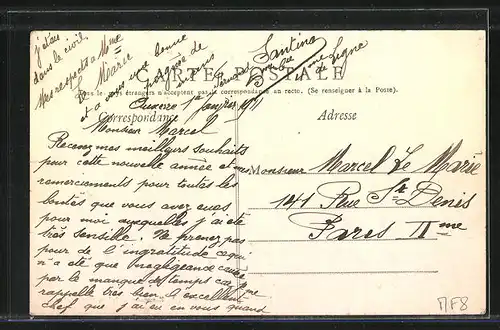 CARTE POSTALE
Tous les pays étrangers n'acceptent pas la correspondance au recto. (Se renseigner à la Poste).
Correspondance
Adresse
Auxerre 1er Janvier 1911
Monsieur Marcel
Recevez mes meilleurs souhaits
pour cette nouvelle année et mes
remerciements pour toutes les
bontés que vous avez eues
pour moi auxquelles j'ai été
très sensible. Ne prenez pas
pour de l'ingratitude ce qui
n'a été que négligeance causée
par le manque de temps car je me
rappelle très bien l'excellent
chef que j'ai eu en vous quand
j'étais
dans le civil
Mes respects à Mme
Marie
et à vous une bonne
poignée de
mains
Santina
de Ligne
Monsieur Marcel Le Marié
141 Rue St Denis
Paris IIme
MF8